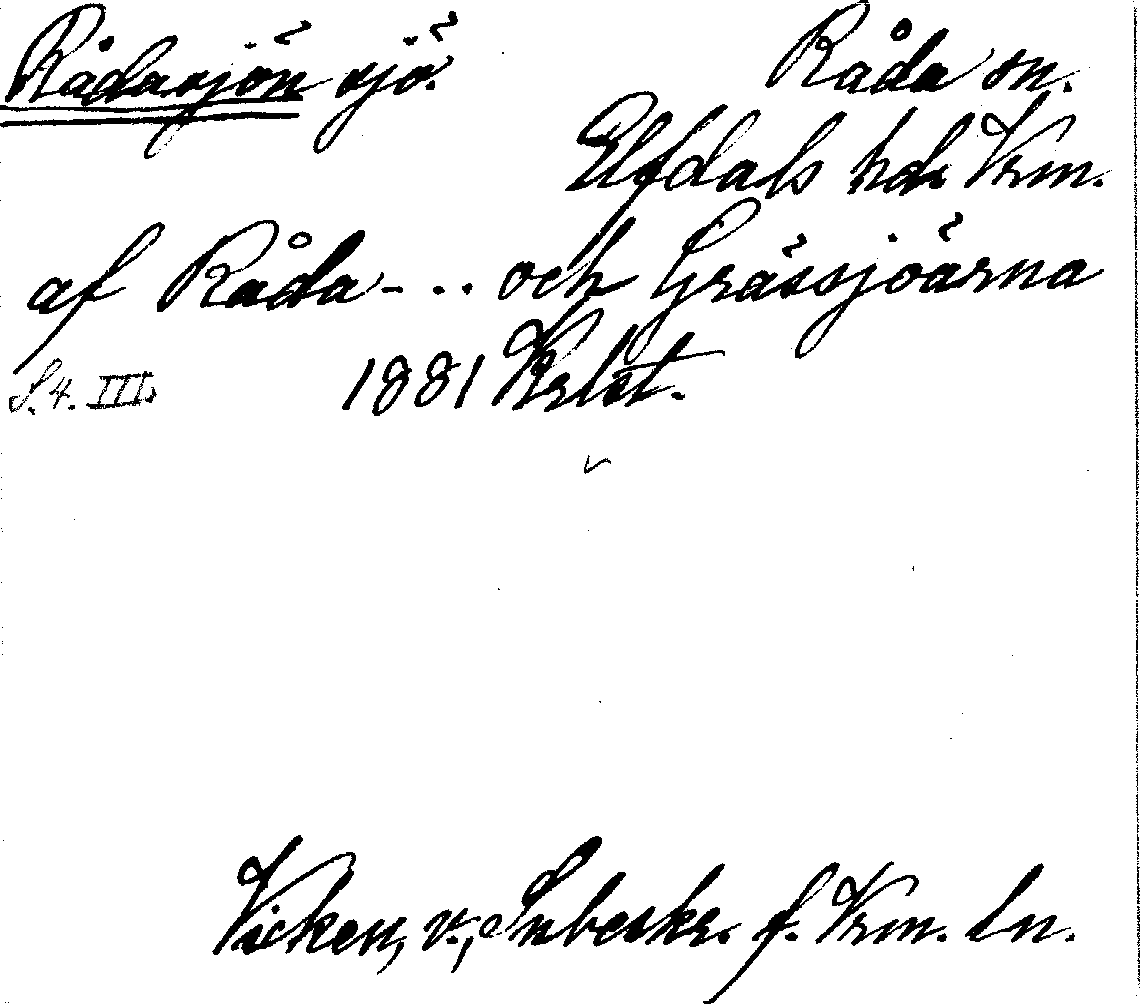 Rådasjön sjö. Råda sn.
Elfdals hd. Vrm.
af Råda - . . och Grässjöarna
S. 4. III. 1881 Krlst.
Vicken, v., Snbeskr. f. Vrm. ln.